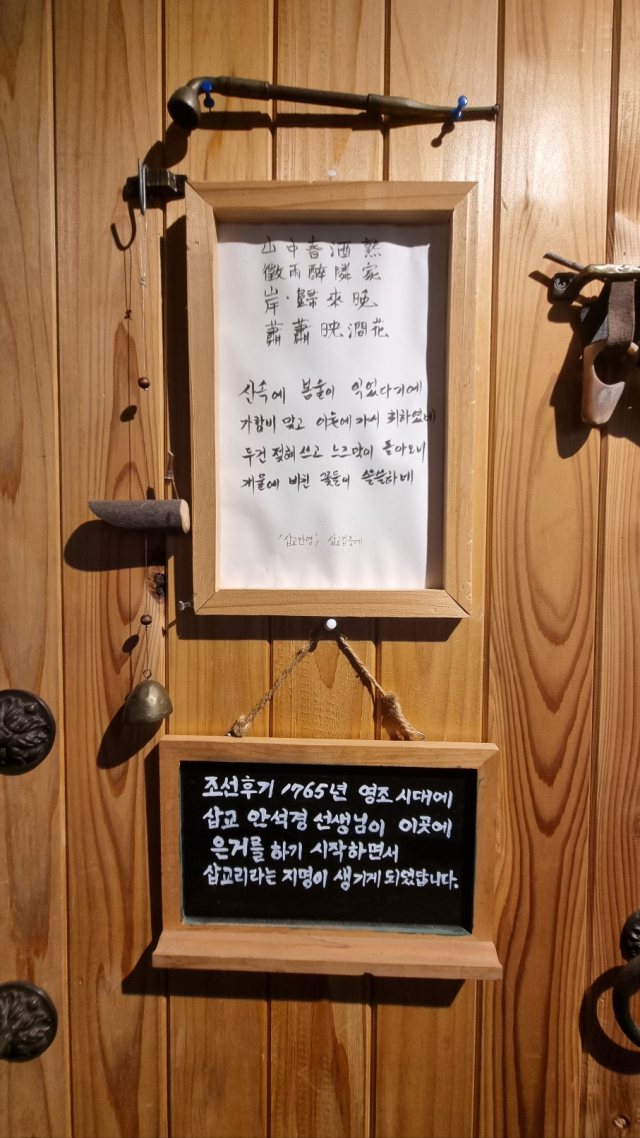 山中春酒熟
微雨醉隣家
岸·歸來晩
蕭蕭映澗花
산속에 봄술이 익었다기에
가랑비 맞고 이웃에 가서 취하였네
두건 젖혀쓰고 느즈막이 돌아오니
개울에 비친 꽃들이 쓸쓸하네
삽교만영
조선후기 1765년 영조 시대에
삽교 안석경 선생님이 이곳에
은거를 하기 시작하면서
삽교리라는 지명이 생기게 되었답니다.